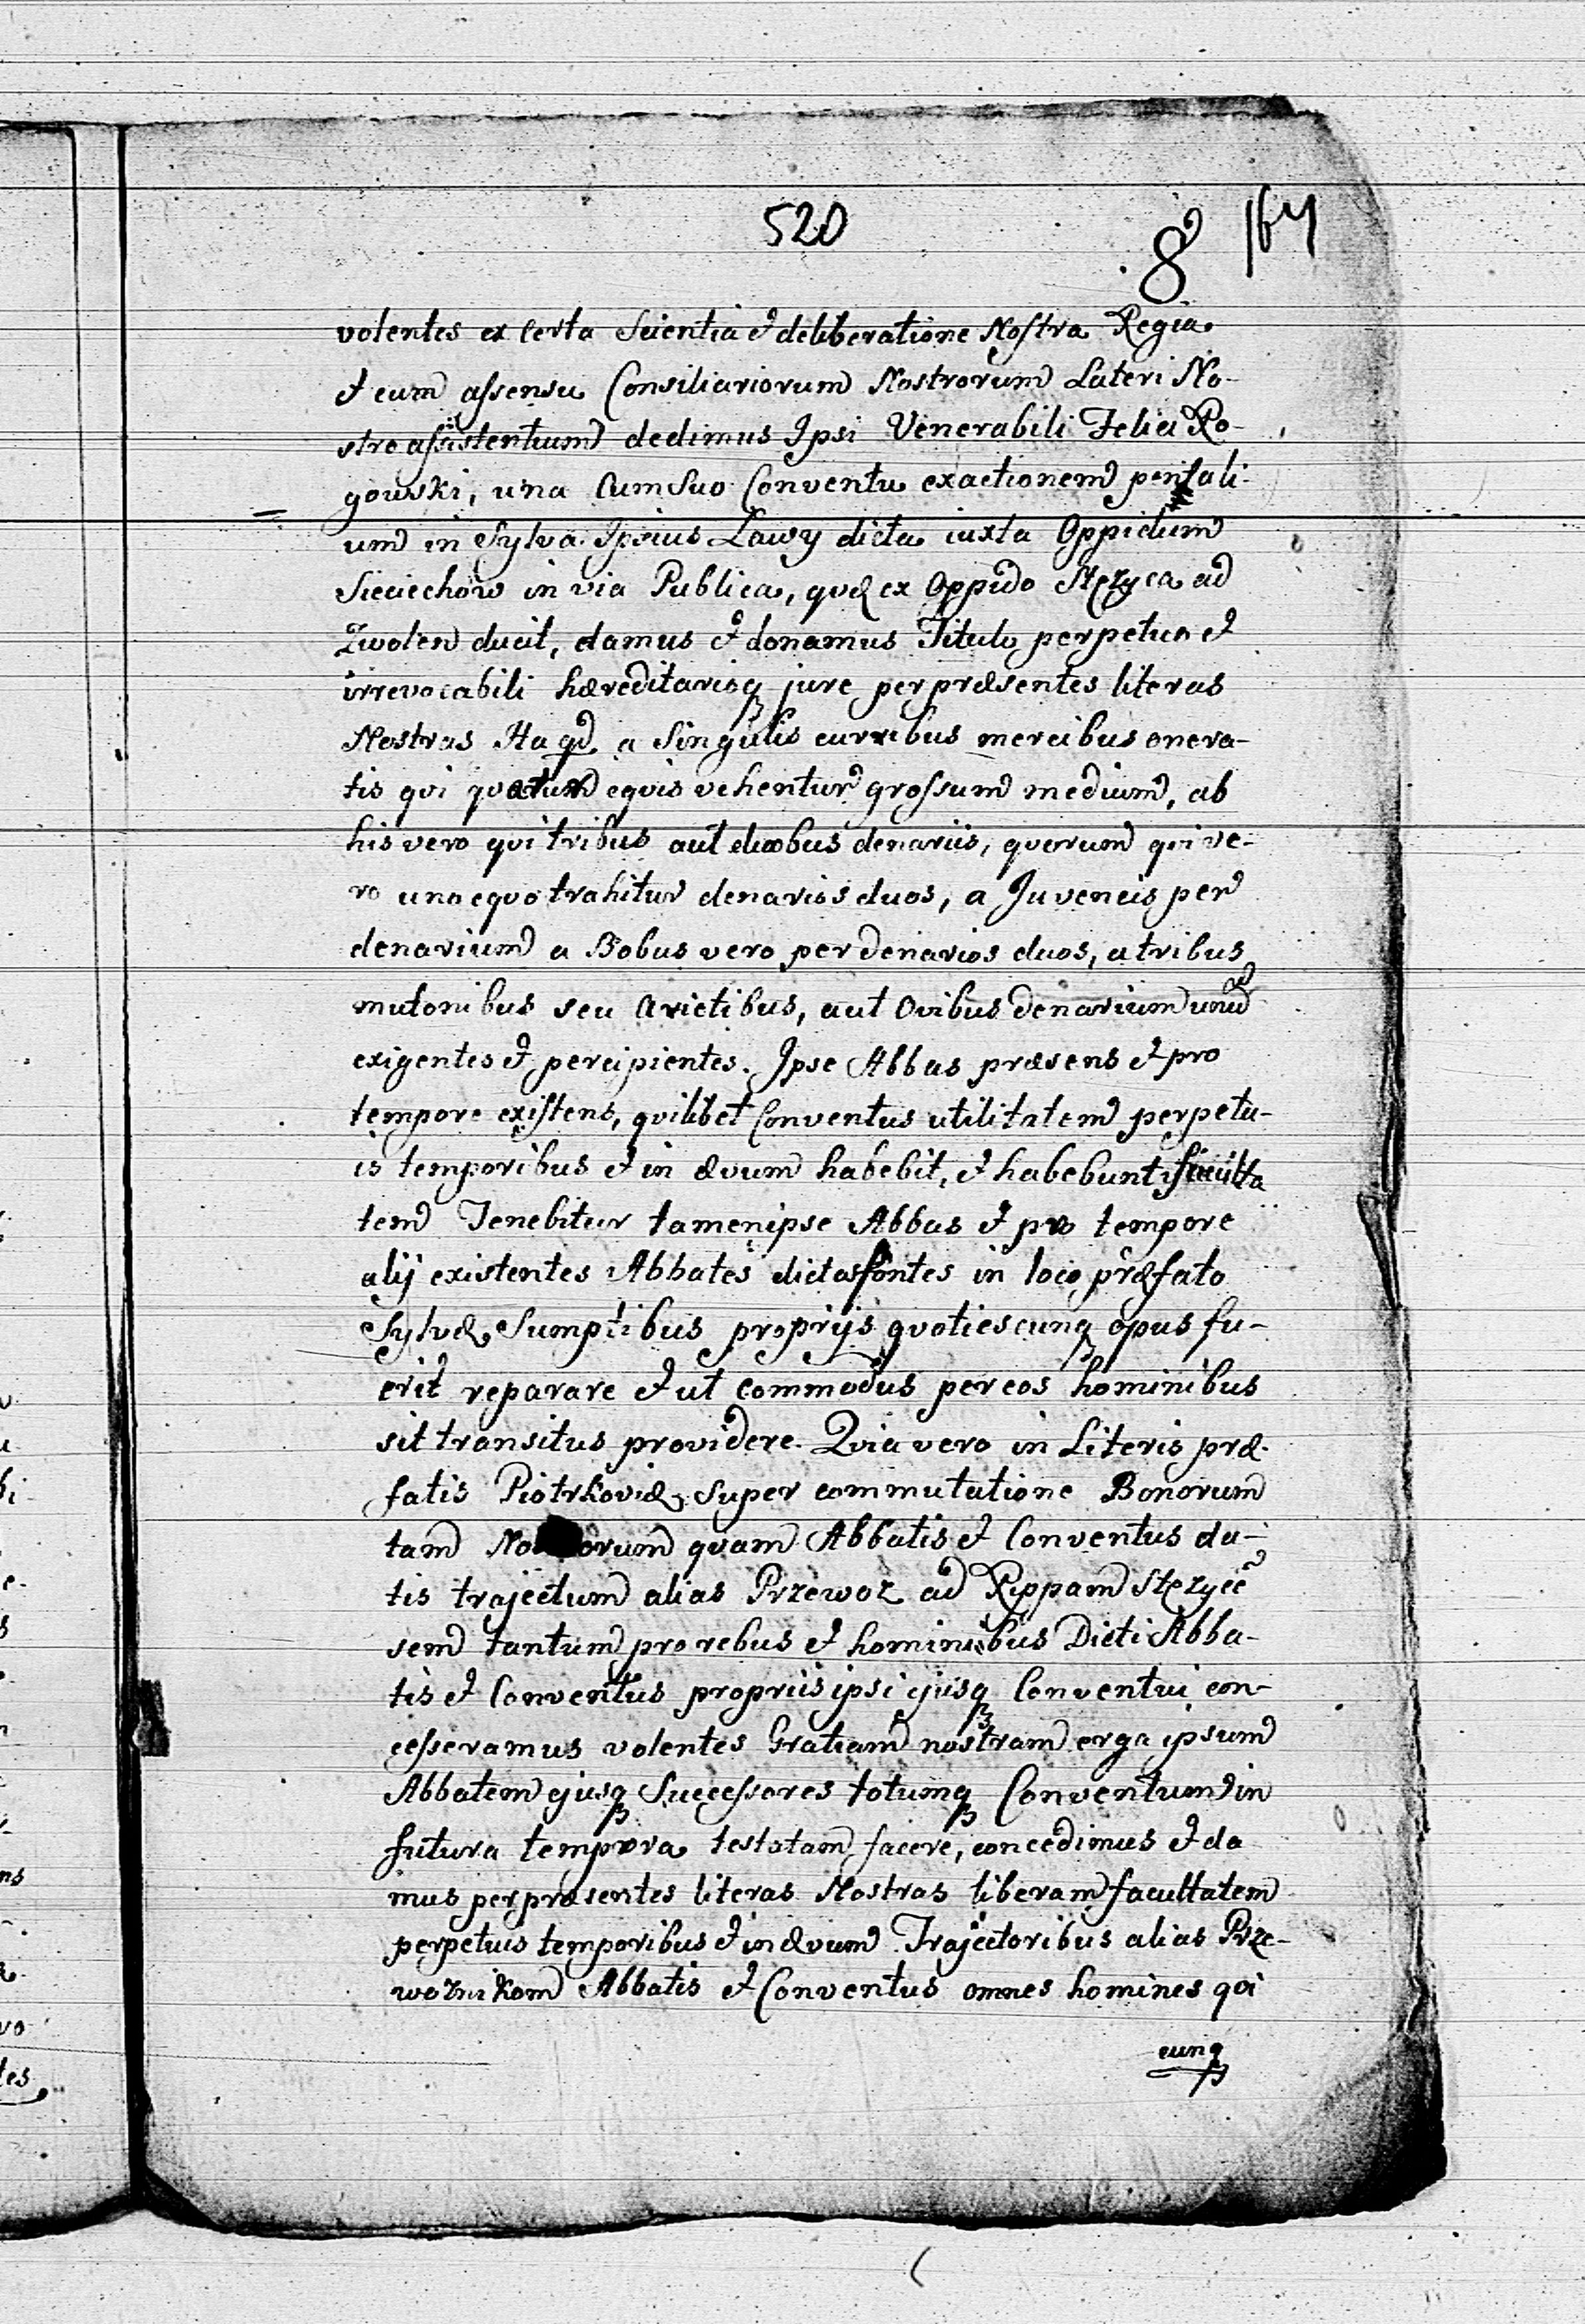 520
8 164
volentes ex certa Scientia et deliberatione Nostra Regia
et cum assensu Consiliariorum Nostrorum Lateri No-
stro assistentium dedimus Ipsi Venerabili Felici Ro-
gowski, una Cum Suo Conventu exactionem pontali-
um in Sylva Ipsius Lawy dicta iuxta Oppidum
Sieciechow in via Publica, quæ ex Oppido Stęzyca ad
Zwolen ducit, damus et donamus Titulo perpetuo et
irrevocabili hæreditarioq3 jure per præsentes literas
Nostras Ita qd a Singulis curribus mercibus onera-
tis qui quatuor equis vehentur grossum medium, ab
his vero qui tribus aut duobus denariis, quorum qui ve-
ro uno equo trahitur denarios duos, a Juvencis per
denarium a Bobus vero per denarios duos, a tribus
mutonibus seu Arietibus, aut Ovibus denarium unum
exigentes et percipientes. Ipse Abbas præsens et pro
tempore existens, quilibet Conventus utilitatem perpetu-
is temporibus et in ævum habebit, et habebunt faculta
tem Tenebitur tamen ipse Abbas et pro tempore
alij existentes Abbates dictos fontes in loco præfato
Sylvæ Sumptibus proprijs quotiescunq3 opus fu-
erit reparare et ut commodus per eos hominibus
sit transitus providere. Quia vero in Literis præ-
fatis Piotrkoviæ super commutatione Bonorum
tam No orum quam Abbatis et Conventus da-
tis trajectum alias Przewoz ad Rippam Stęzycē
sem tantum pro rebus et hominibus Dicti Abba-
tis et Conventus propriis ipsi ejusq3 Conventui con-
cesseramus volentes Gratiam nostram erga ipsum
Abbatem ejusq3 Successores totumq3 Conventum in
futura tempora testatam facere, concedimus et da
mus per præsentes literas Nostras liberam facultatem
perpetuis temporibus et in ævum Trajectoribus alias Prze-
woznikom Abbatis et Conventus omnes homines qui
cunq3